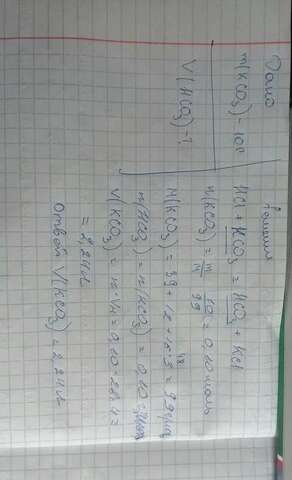 Дано
m(KCO₃) - 10г
V(HCO₃) - ?
Решение
HCl + KCO₃ = HCO₃ + KCl
n(KCO₃) = m/M = 10/99 = 0,10 моль
M(KCO₃) = 39 + 12 + 16·3 = 99 г/моль
n(HCO₃) = n(KCO₃) = 0,10 моль
V(KCO₃) = n·Vм = 0,10·22.4 =
= 2,24 л
Ответ V(KCO₃) = 2,24 л